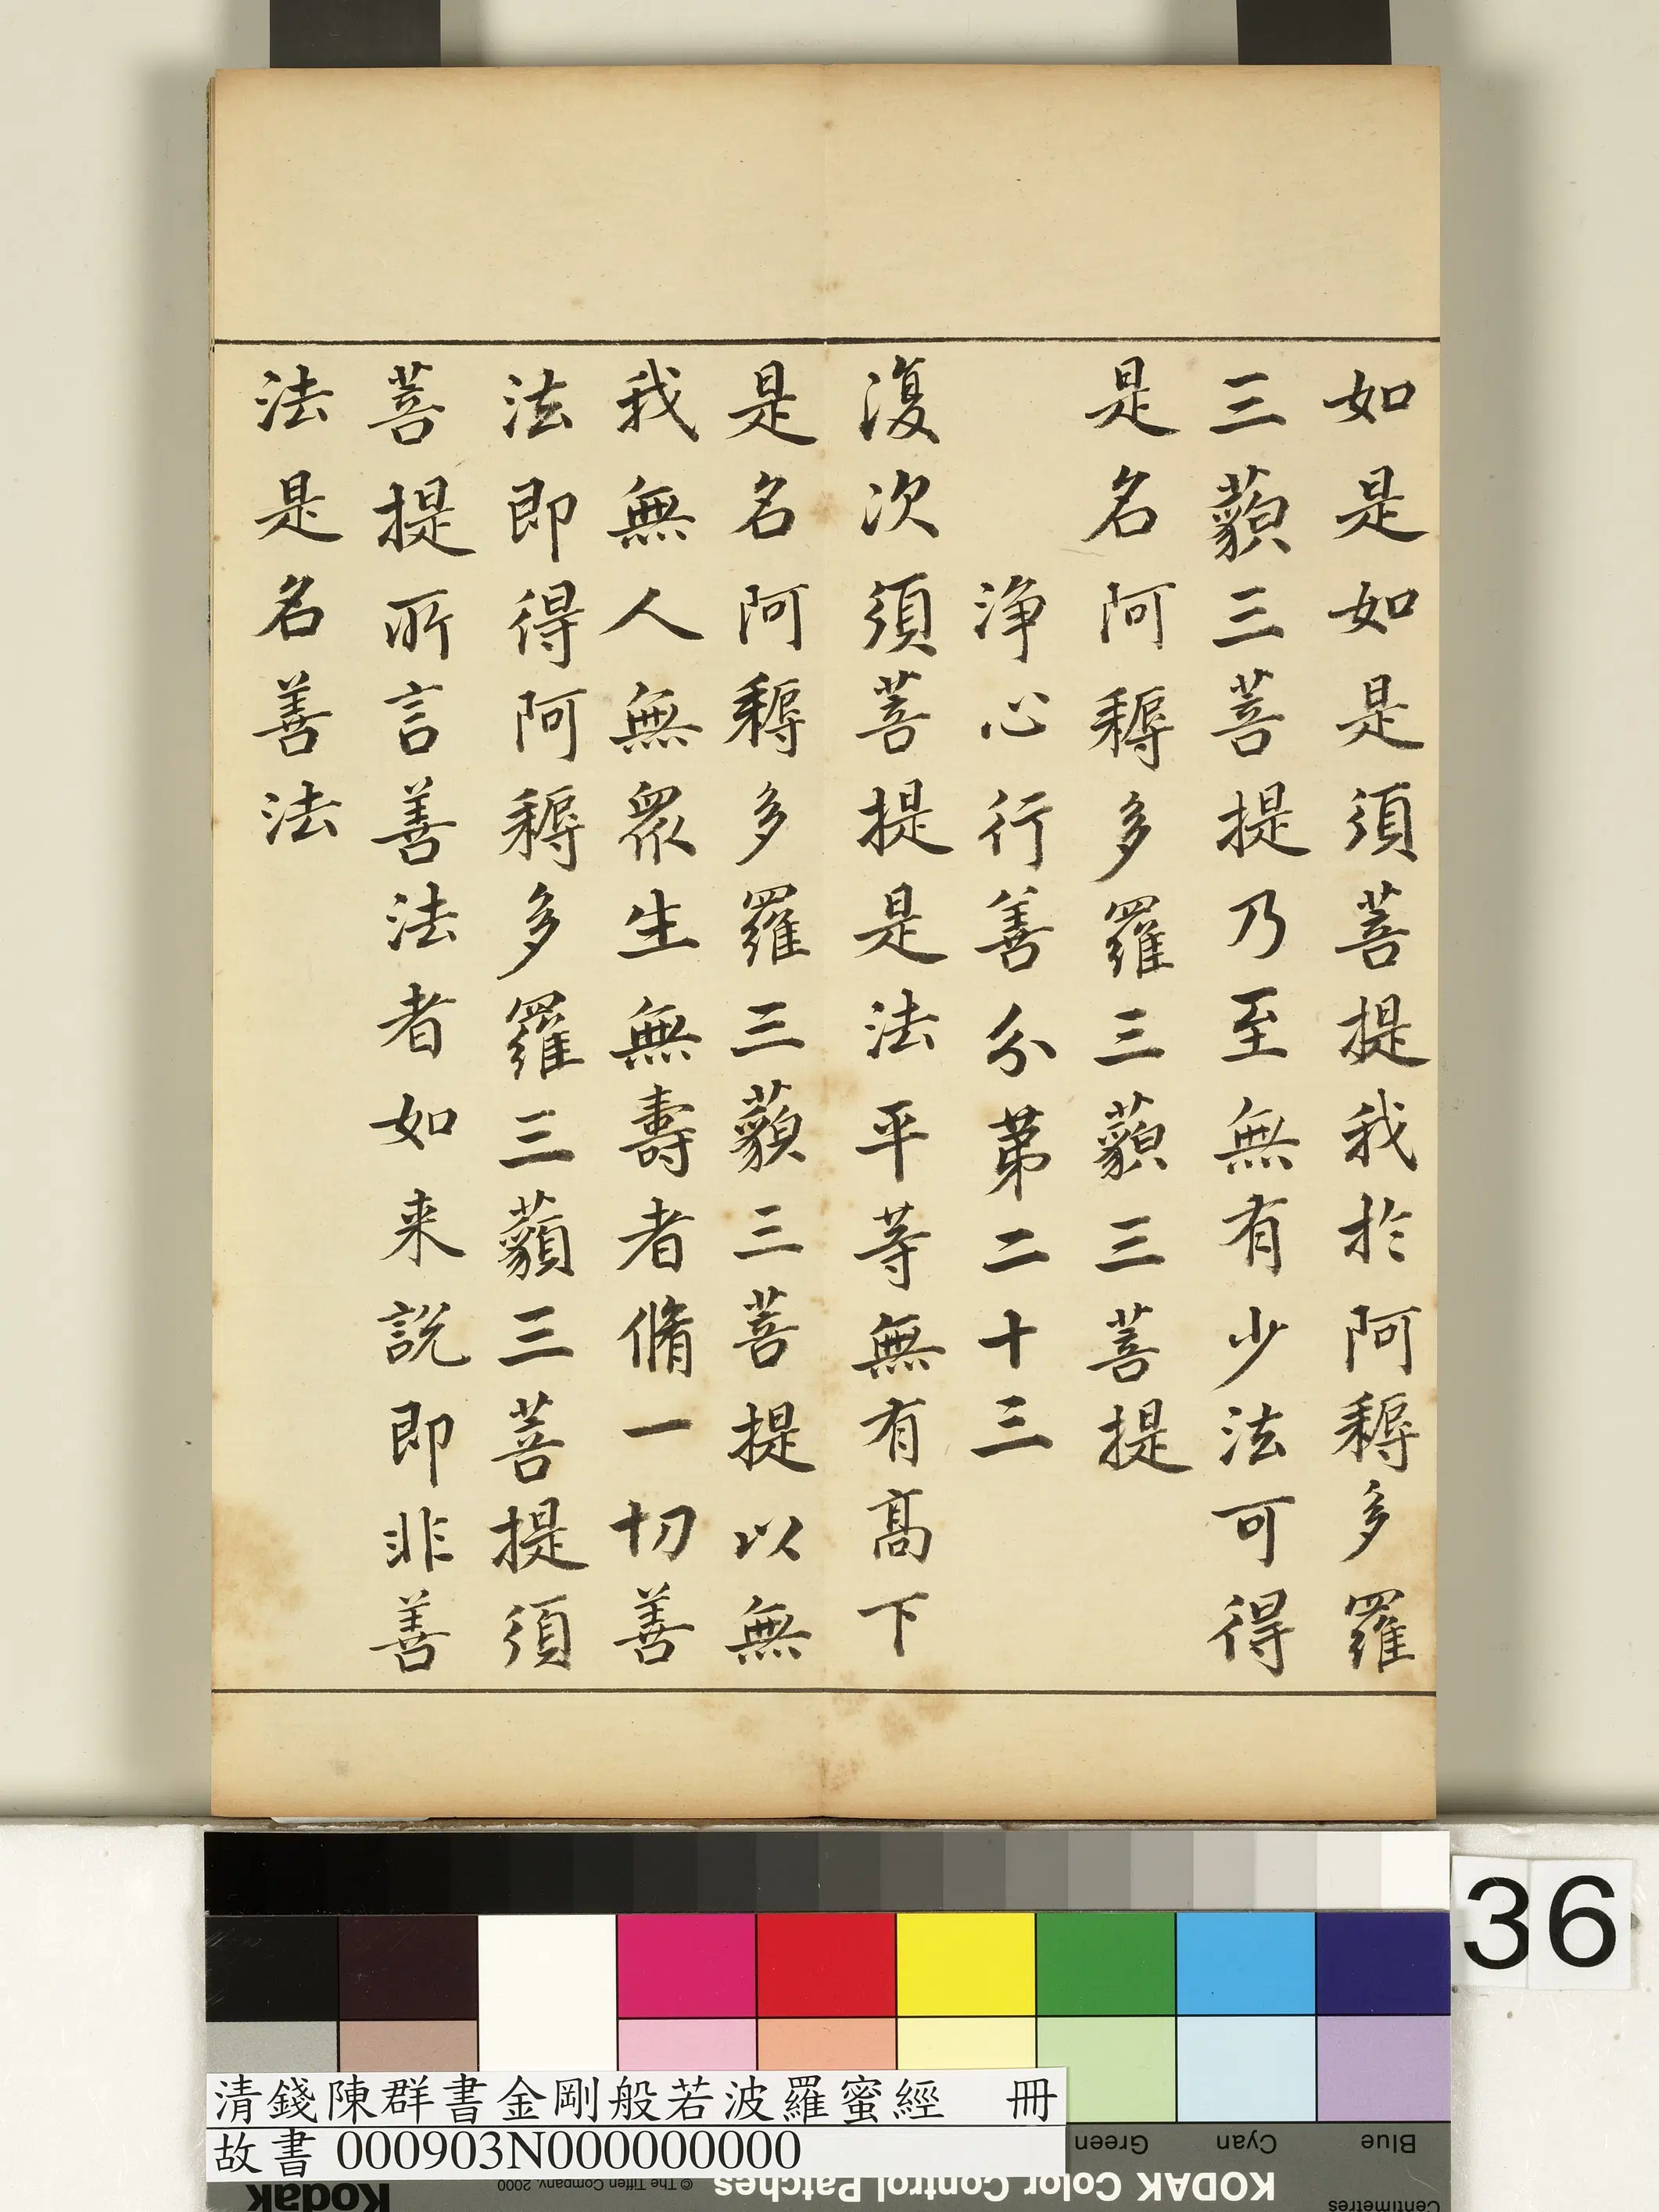 如是如是須菩提我於阿耨多羅
三藐三菩提乃至無有少法可得
是名阿耨多羅三藐三菩提
淨心行善分第二十三
復次須菩提是法平等無有高下
是名阿耨多羅三藐三菩提以無
我無人無眾生無壽者脩一切善
法即得阿耨多羅三藐三菩提須
菩提所言善法者如来説即非善
法是名善法
36
清錢陳群書金剛般若波羅蜜經 冊
故書 000903N000000000
Green
Cyan
Blue
Kodak
© The Tiffen Company, 2000
KODAK Color Control Patches
Centimetres